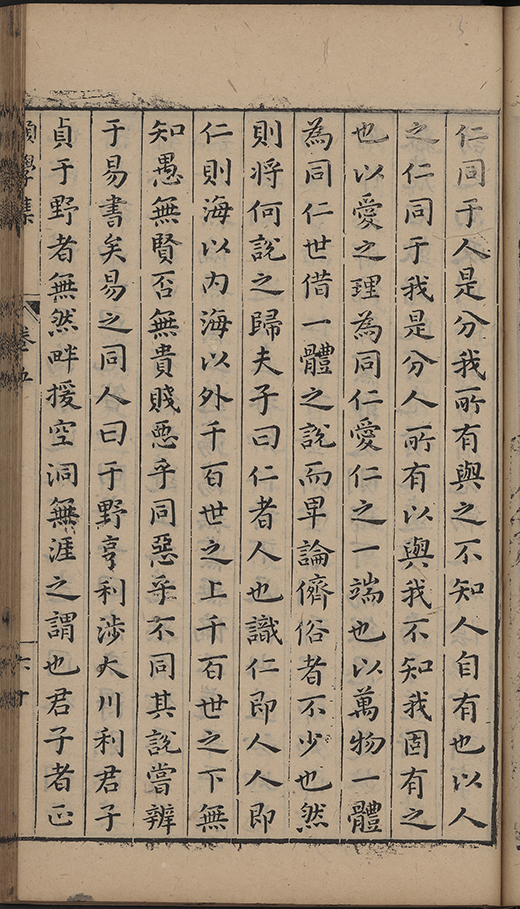 仁同于人是分我所有與之不知人自有也以人
之仁同于我是分人所有以與我不知我固有之
也以愛之理為同仁愛仁之一端也以萬物一體
為同仁世借一體之說而卑論儕俗者不少也然
則将何說之歸夫子曰仁者人也識仁即人人即
仁則海以内海以外千百世之上千百世之下無
知愚無賢否無貴賤悪乎同惡乎不同其說嘗辨
于易書矣易之同人曰于野亨利涉大川利君子
貞于野者無然畔援空洞無涯之謂也君子者正
學集
卷五